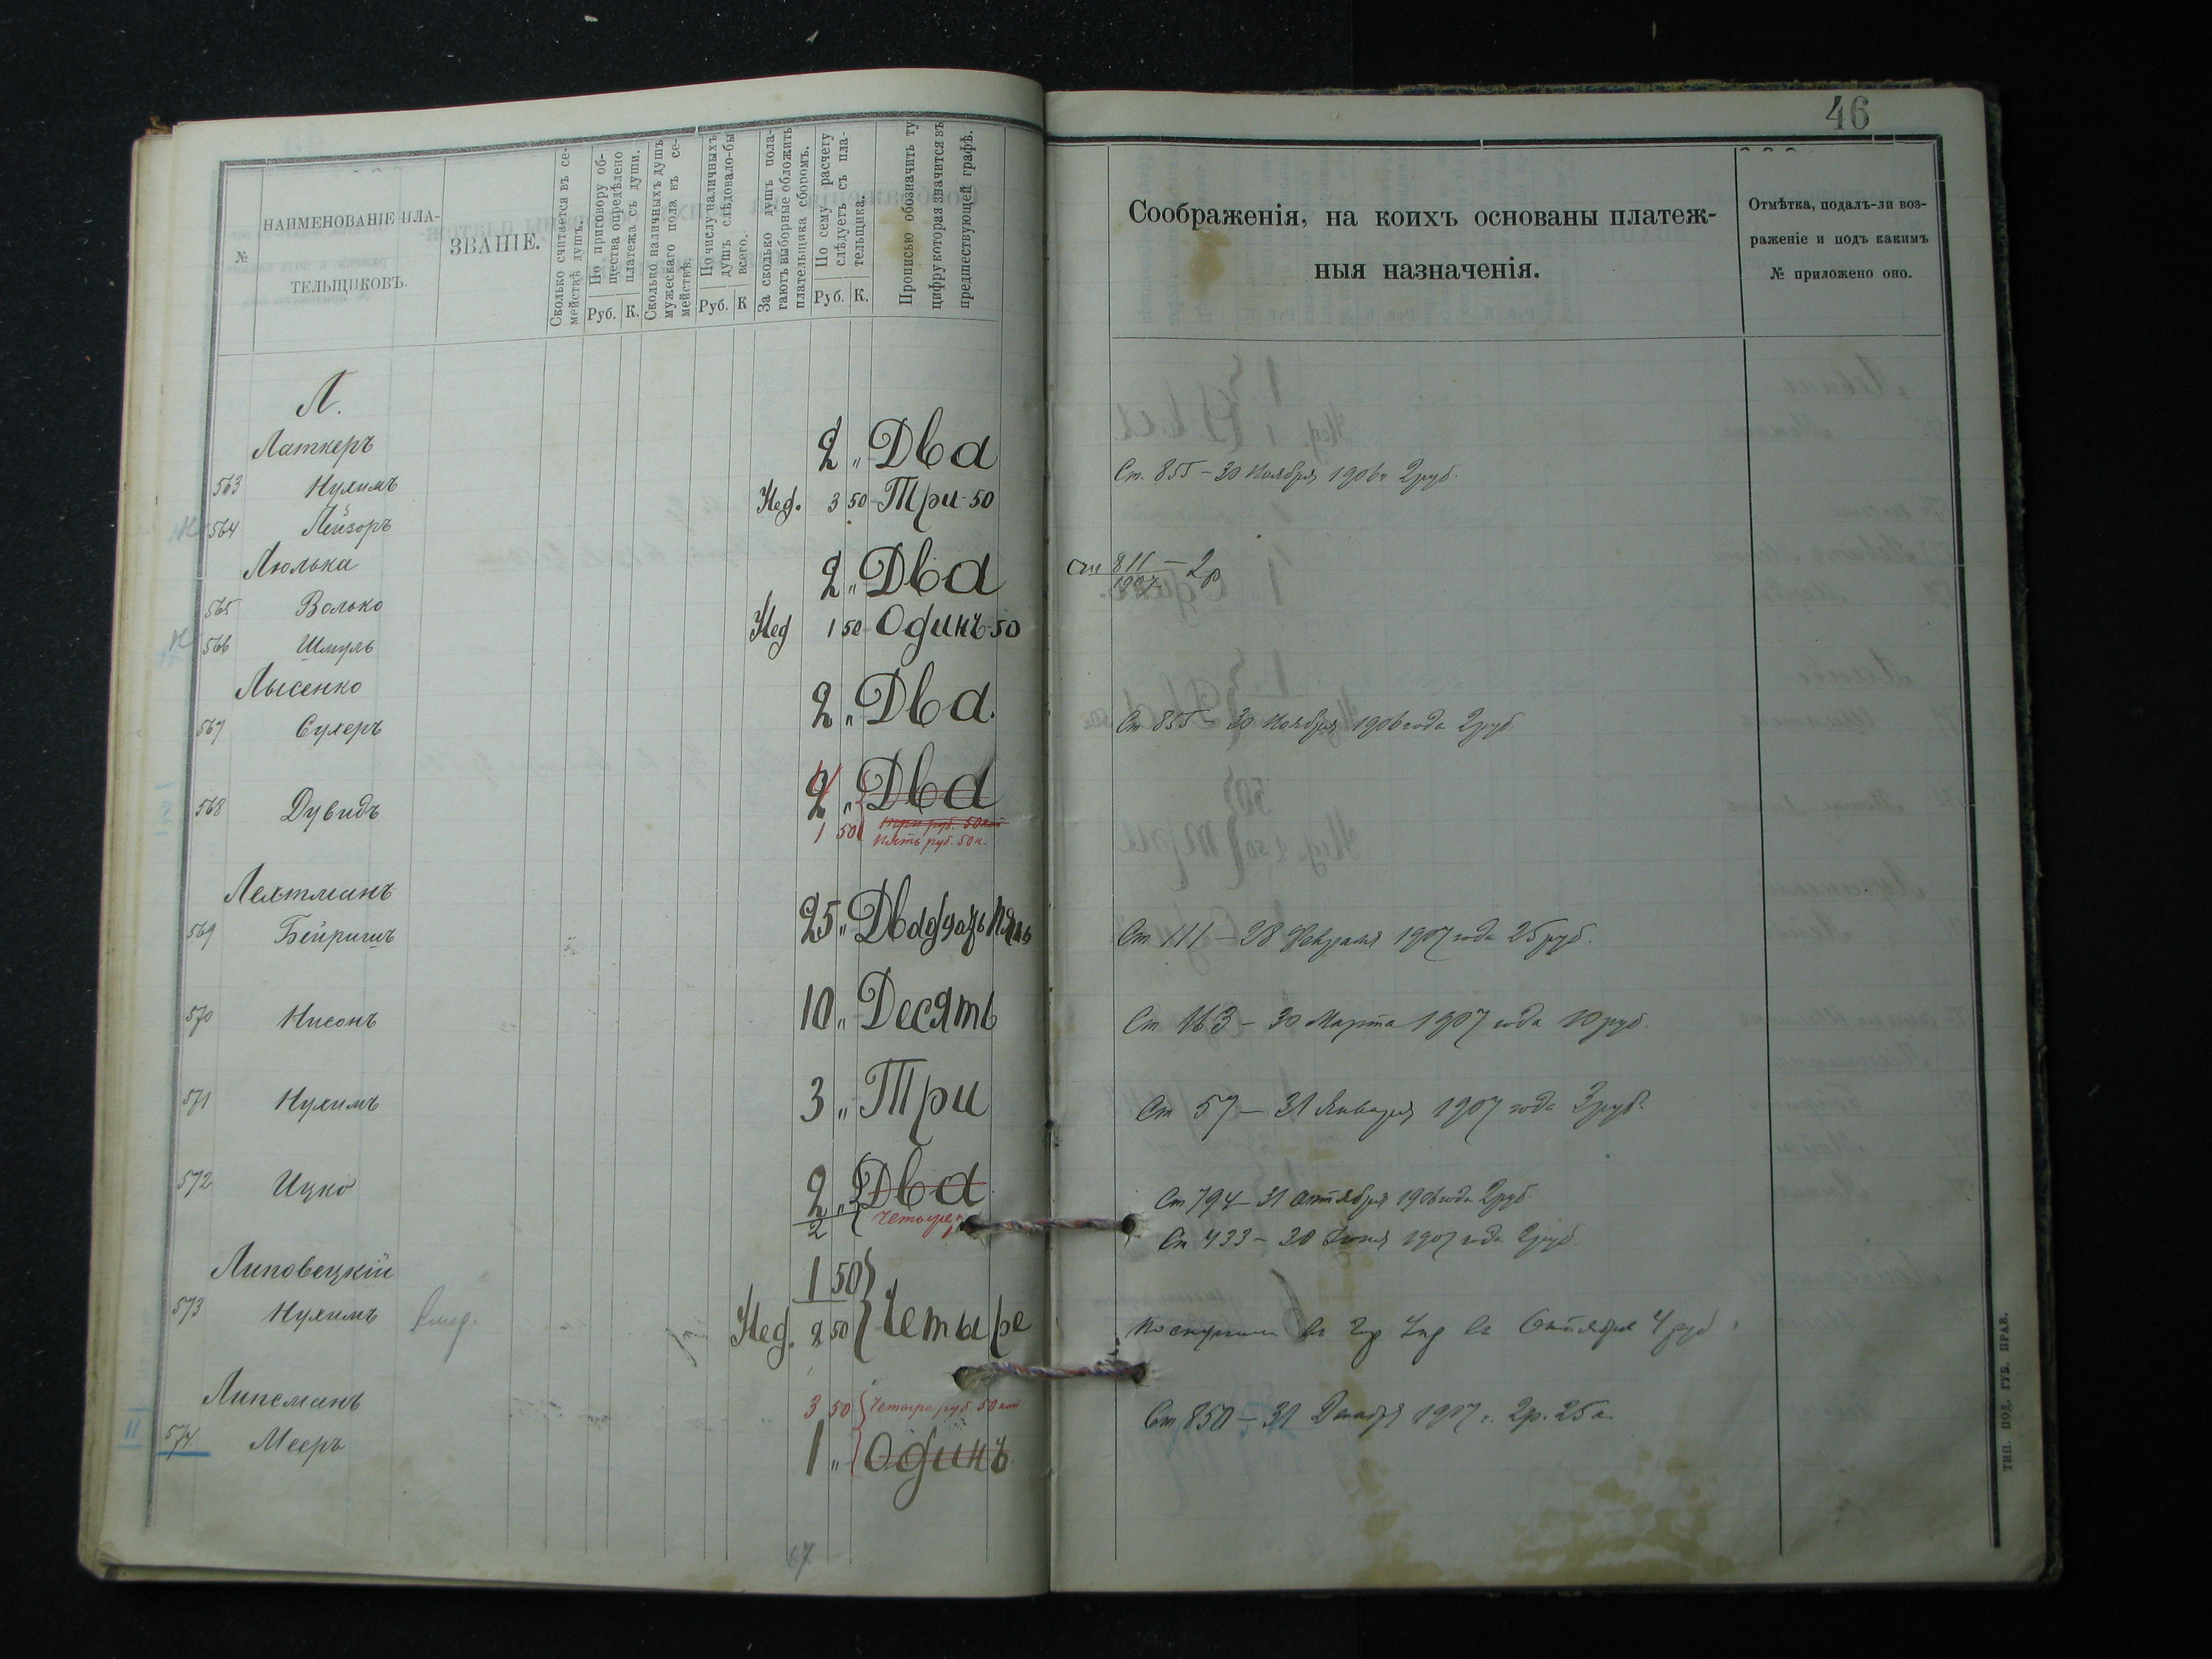 46
№
НАИМЕНОВАНІЕ ПЛА-
ТЕЛЬЩИКОВЪ.
ЗВАНІЕ.
Сколько считается въ се-
мействѣ душъ.
По приговору об-
щества опредѣлено
платежа съ души.
Руб. К.
Сколько наличныхъ душъ
мужескаго пола въ се-
мействѣ.
По числу наличныхъ
душъ слѣдовало-бы
всего.
Руб. К
За сколько душъ пола-
гаютъ выборные обложить
плательщика сборомъ.
По сему расчету
слѣдуетъ съ пла-
тельщика.
Руб. К.
Прописью обозначить ту
цифру которая значится въ
предшествующей графѣ.
Соображенія, на коихъ основаны платеж-
ныя назначенія.
Отмѣтка, подалъ-ли воз-
раженіе и подъ какимъ
№ приложено оно.
Л.
Латкеръ
563 Нухимъ 2 „ Два Ст. 855 - 30 Ноября 1906 г 2 руб.
564 Лейзоръ Нед. 3 50 Три-50
Люлька
565 Волько 2 „ Два Ст 811 1907 - 2 р
566 Шмуль Нед 1 50 Одинъ-50
Лысенко
567 Сухеръ 2 „ Два. Ст 855 - 30 Ноября 1906 года 2 руб
2 568 Дувидъ 2 „ Два
1 50 три руб. 50 коп
Пять руб. 50 к.
Лехтманъ
569 Бейришъ 25 „ Двадцать Пять Ст 111 - 28 Февраля 1907 года 25 руб.
570 Нисонъ 10 „ Десять Ст 163 - 30 Марта 1907 года 10 руб.
571 Нухимъ 3 „ Три Ст 57 - 31 Января 1907 года 3 руб.
572 Ицко 2 „ Два Ст 794 - 31 Октября 1906 года 2 руб
2 четыре Ст 433 - 30 Іюня 1907 года 2 руб
Липовецкій
1 50
573 Нухимъ Нед. 2 50 Четыре въ Октябрѣ 4 руб
Липсманъ
3 50 Четыре руб. 50 коп Ст 850 - 31 Декабря 1907 г. 2 р. 25 к.
11 574 Мееръ 1 „ Одинъ
67
ТИП. ПОД. ГУБ. ПРАВ.